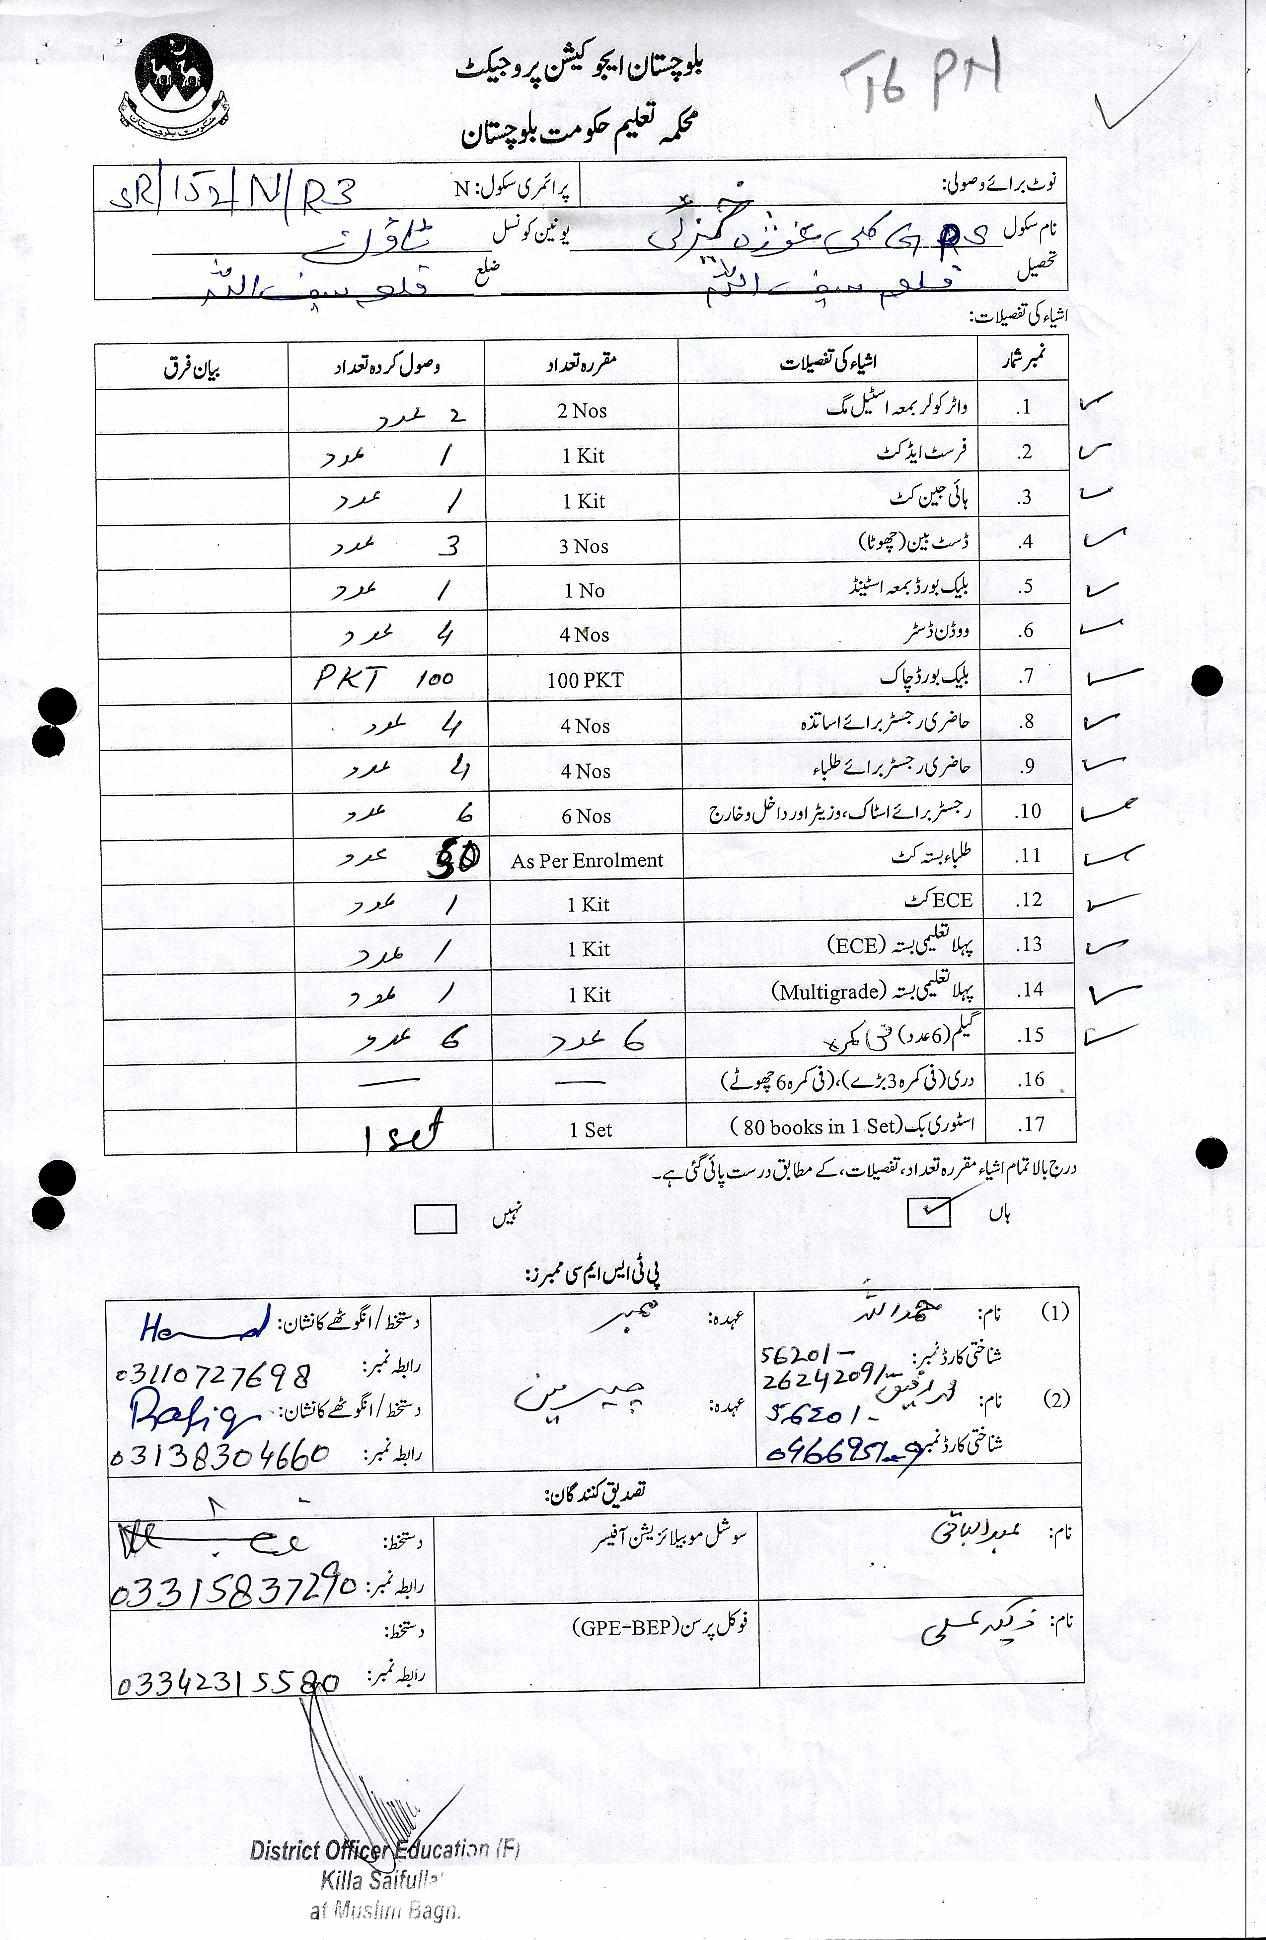 بلوچستان ایجوکیشن پروجیکٹ
T6 PN
محکمہ تعلیم حکومت بلوچستان
نوٹ برائے وصولی:
پرائمری سکول: N SR/152/N/R3
نام سکول GPS کلی غوژہ یونین کونسل ٹاؤن
تحصیل قلعہ سیف اللہ ضلع قلعہ سیف اللہ
اشیاء کی تفصیلات:
نمبر شمار اشیاء کی تفصیلات مقررہ تعداد وصول کردہ تعداد بیان فرق
1. واٹر کولر بمعہ اسٹیل مگ 2 Nos 2 عدد
2. فرسٹ ایڈ کٹ 1 Kit 1 عدد
3. ہائی جین کٹ 1 Kit 1 عدد
4. ڈسٹ بین (چھوٹا) 3 Nos 3 عدد
5. بلیک بورڈ بمعہ اسٹینڈ 1 No 1 عدد
6. ووڈن ڈسٹر 4 Nos 4 عدد
7. بلیک بورڈ چاک 100 PKT 100 PKT
8. حاضری رجسٹر برائے اساتذہ 4 Nos 4 عدد
9. حاضری رجسٹر برائے طلباء 4 Nos 4 عدد
10. رجسٹر برائے اسٹاک، وزیٹر اور داخل و خارج 6 Nos 6 عدد
11. طلباء بستہ کٹ As Per Enrolment عدد
12. ECE کٹ 1 Kit 1 عدد
13. پہلا تعلیمی بستہ (ECE) 1 Kit 1 عدد
14. پہلا تعلیمی بستہ (Multigrade) 1 Kit 1 عدد
15. گیلم (6 عدد) فی کمرہ 6 عدد 6 عدد
16. دری (فی کمرہ 3 بڑے)، (فی کمرہ 6 چھوٹے) — —
17. اسٹوری بک (80 books in 1 Set) 1 Set 1 set
درج بالا تمام اشیاء مقررہ تعداد، تفصیلات، کے مطابق درست پائی گئی ہے۔
ہاں نہیں
پی ٹی ایس ایم سی ممبرز:
(1) نام: حمداللہ عہدہ: ممبر دستخط/انگوٹھے کا نشان:
شناختی کارڈ نمبر: 56201-2624209/- رابطہ نمبر: 03110727698
(2) نام: محمد رفیق عہدہ: چیئرمین دستخط/انگوٹھے کا نشان: Rafiq
شناختی کارڈ نمبر: 56201- رابطہ نمبر: 03138304660
تصدیق کنندگان:
نام: عبدالباقی سوشل موبیلائزیشن آفیسر دستخط:
رابطہ نمبر: 03315837290
نام: فوکل پرسن (GPE-BEP) دستخط:
رابطہ نمبر: 03342315580
District Officer Education (F)
Killa Saifulla
at Muslim Bagh.